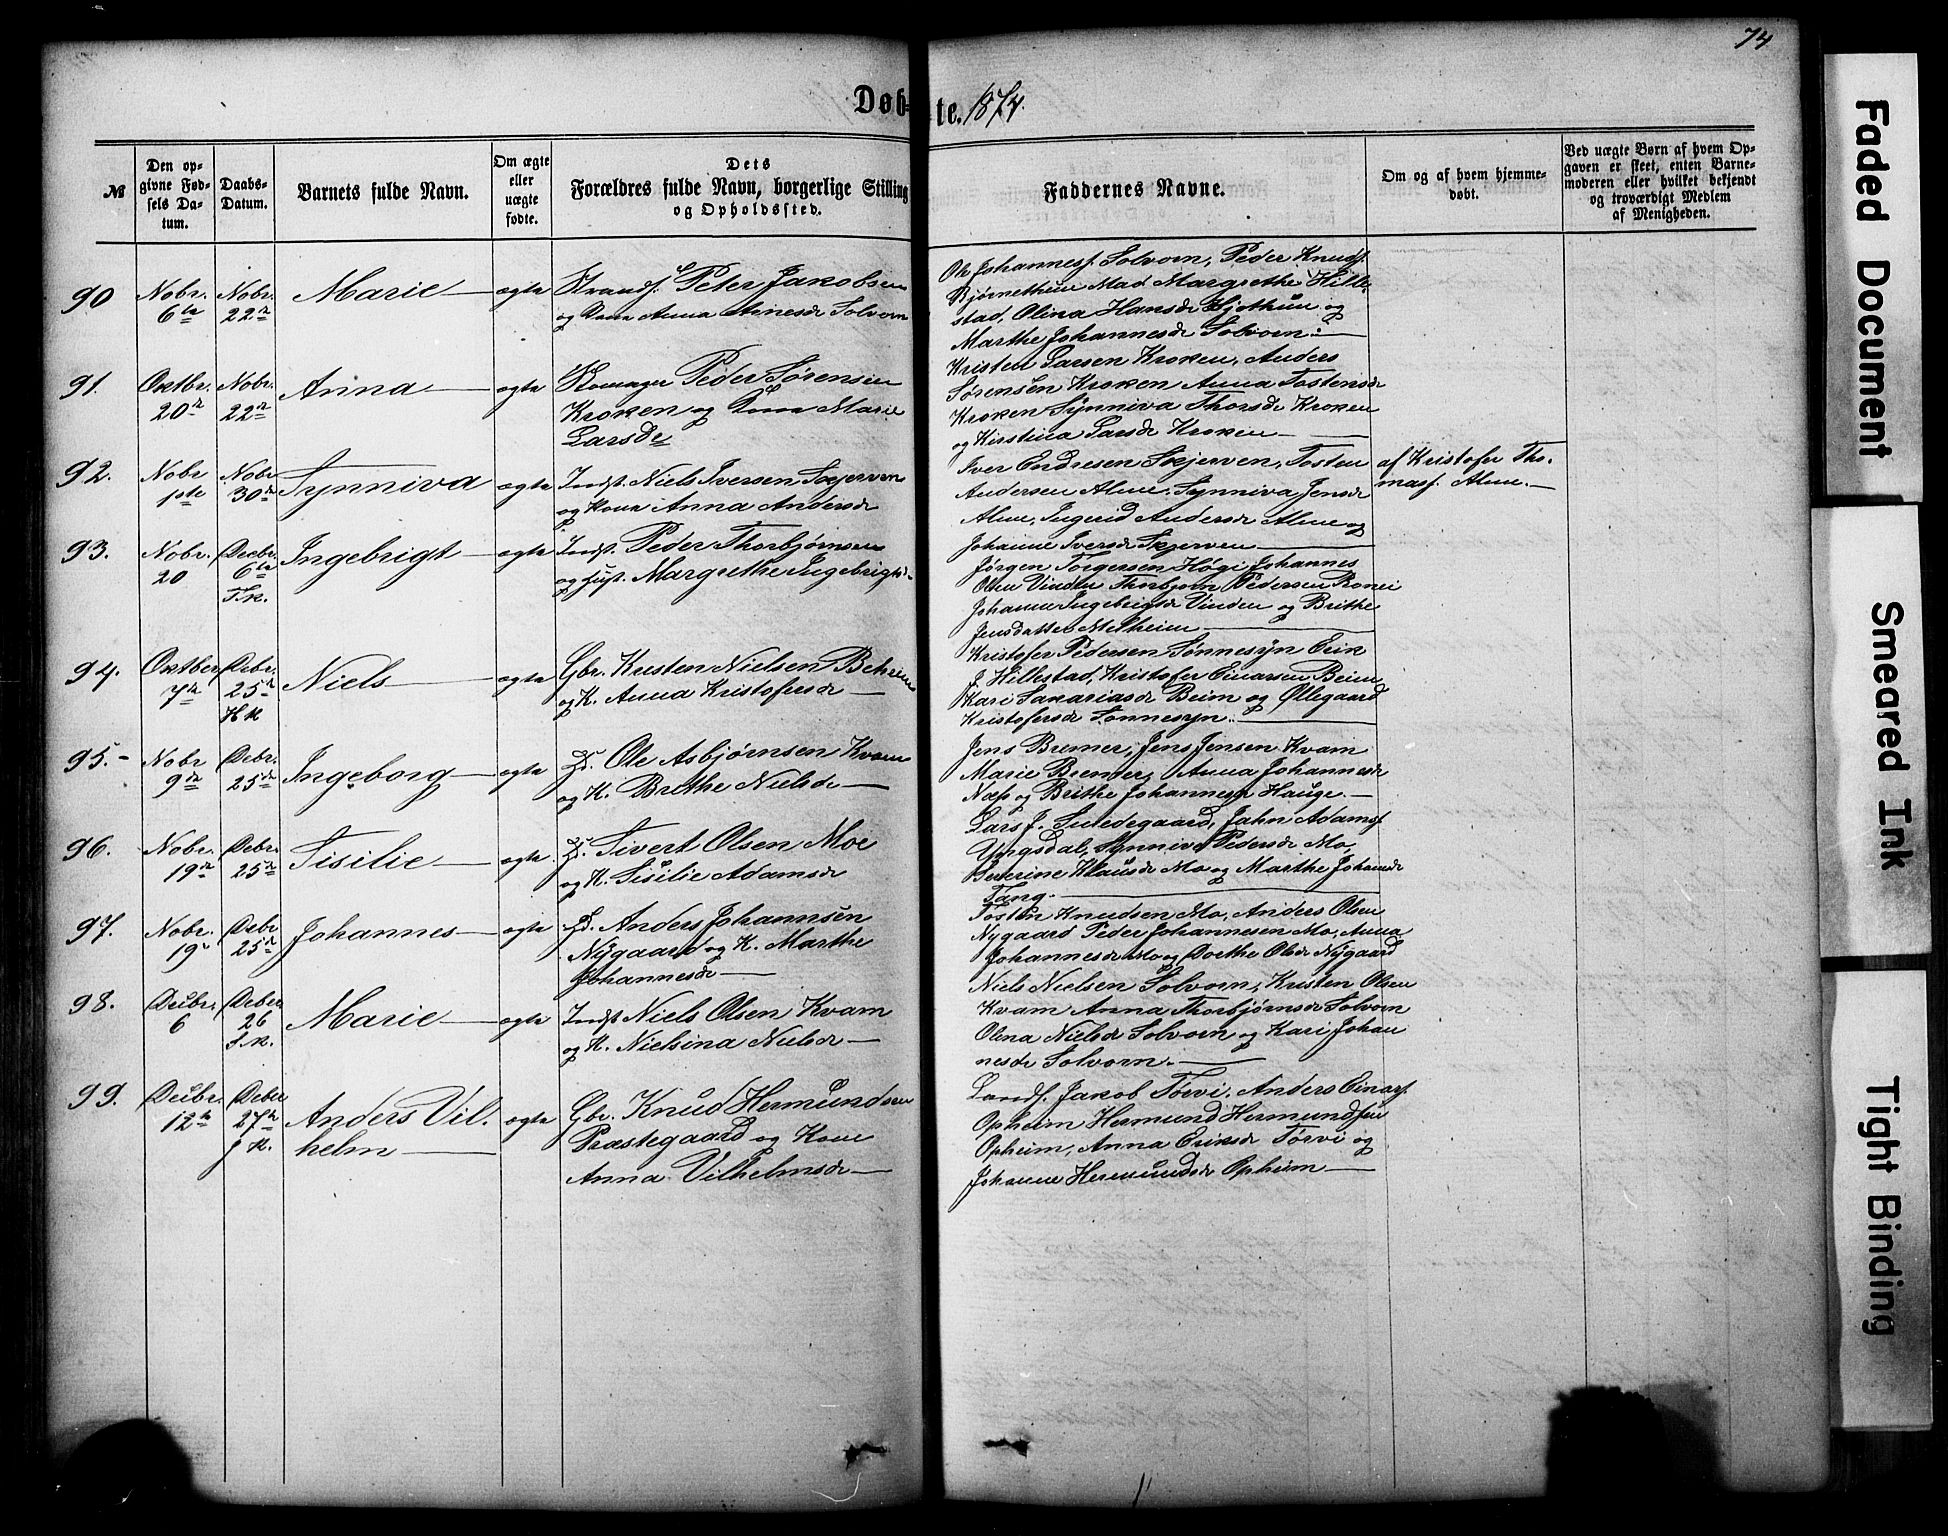 74
Døb-te. 1874.
№
Den op-
givne Fød-
sels Da-
tum.
Daabs-
Datum.
Barnets fulde Navn.
Om ægte
eller
uægte
fødte.
Dets
Forældres fulde Navn, borgerlige Stilling
og Opholdssted.
Faddernes Navne.
Om og af hvem hjemme-
døbt.
Ved uægte Børn af hvem Op-
gaven er skeet, enten Barne-
moderen eller hvilket bekjendt
og troværdigt Medlem
af Menigheden.
90
Nobr.
6te
Nobr.
22n
Marie
ægte
Strands. Peter Jakobsen
og Kone Anna Arnesdr Solvorn
Ole Johanness. Solvorn, Peder Knuds.
Mad Margrethe Hille-
stad, Olina Hansdr og
Marthe Johannesdr Solvorn.
91.
Oktbr.
20n
Nobr.
22n
Anna
ægte
Peder Sørensen
Kroken og Kone Marie
Larsdr
Kristen Larsen Kroken, Anders
Sørensen Kroken Anna Tostensdr
Kroken Synniva Thorsdr Kroken
og Kirstina Larsdr Kroken
92.
Nobr
1ste
Nobr
30n
Synniva
ægte
Indst. Niels Iversen Skjerven
og Kone Anna Andersdr
Iver Endresen Skjerven, Tosten
Andersen Alme, Synniva Jensdr
Alme, Ingerid Andersdr Alme og
Johanne Iversdr Skjerven
af Kristofer Tho-
mass. Alme.
93.
Nobr.
20
Decbr.
6te
F.k.
Ingebrigt
ægte
Indst. Peder Thorbjørnsen
og Hust. Margrethe Ingebrigtsd.
Jørgen Torgersen Høgi Johannes
Olsen Vinden Thorbjørn Pedersen Ronei
Johanne Ingebrigtsdr Vinden og Brithe
Jensdatter Melheim
94.
Oktber
7n
Debr.
25n
H k
Niels
ægte
Gbr. Kristen Nielsen
og K. Anna Kristofersdr
Kristofer Pedersen Sønnesyn Erik
J. Hillestad, Kristofer Einarsen Beim
Kari Sakariasdr Beim og Øllegaard
Kristofersdr Sønnesyn.
95.
Nobr
9n
Debr.
25n
Ingeborg
ægte
Ole Asbjørnsen Kvam
og K. Brithe Nielsdr
Jens Bremer, Jens Jensen Kvam
Marie Bremer, Anna Johannesdr
Næss og Brithe Johannesdr Hauge.
96.
Nobr.
19n
Debr.
25n
Sisilie
ægte
Sivert Olsen Moe
og K. Sisilie Adamsdr
Lars J. Suledegaard, Jahn Adams.
Yngsdal, Synniva Pedersdr Mo,
Severine Klausdr Mo og Marthe Johansdr
Tang.
97.
Nobr.
19
Debr
25n
Johannes
ægte
Anders Johannsen
Nygaard og K. Marthe
Johannesdr
Tosten Knudsen Mo, Anders Olsen
Nygaard Peder Johannesen Mo, Anna
Johannesdr Mo og Dorthe Olsdr Nygaard
98.
Decbr.
6
Deber
26
S.K.
Marie
ægte
Indst Niels Olsen Kvam
og K. Nielsina Nielsdr
Niels Nielsen Solvorn, Kristen Olsen
Kvam Anna Thorbjørnsdr Solvorn
Olena Nielsdr Solvorn og Kari Johan
nesdr Solvorn.
99.
Decbr.
12te
Deber
27te
J K.
Anders Vil-
helm
ægte
Gbr. Knud Hermundsen
Præstegaard og Kone
Anna Vilhelmsdr
Lands. Jakob Tørvi, Anders Einars.
Opheim Hermund Hermundsen
Opheim, Anna Eriksdr Tørvi og
Johanne Hermundsdr Opheim
Faded Document
Smeared Ink
Tight Binding